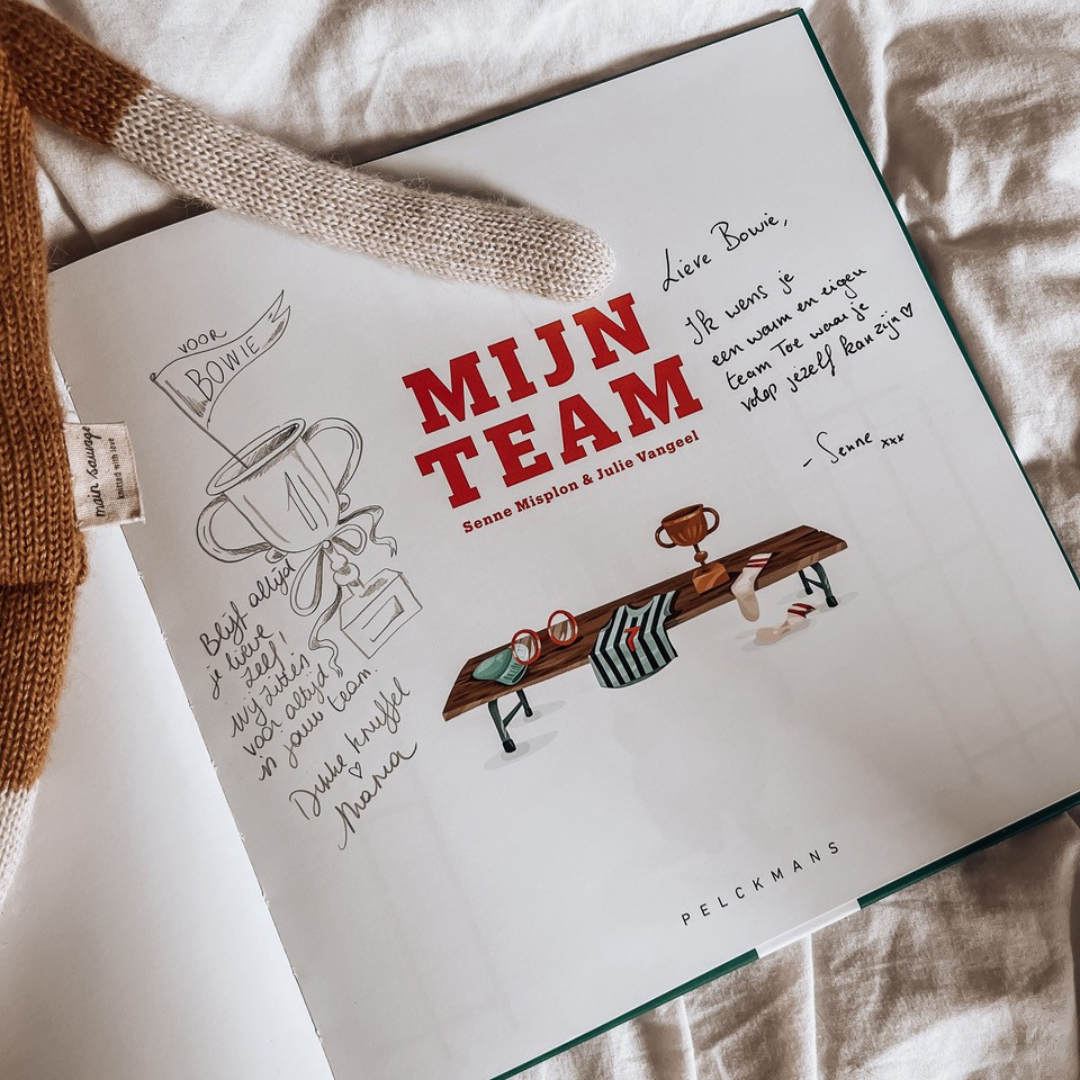 VOOR
BOWIE
1
Blijf altijd
je lieve
zelf!
wij zitten
voor altijd
in jouw team.
Dikke knuffel
♡
Mama
main sauvage
knitted with love
MIJN
TEAM
Senne Misplon & Julie Vangeel
7
Lieve Bowie,
Ik wens je
een warm en eigen
team toe waar je
volop jezelf kan zijn ♡
- Senne xxx
PELCKMANS